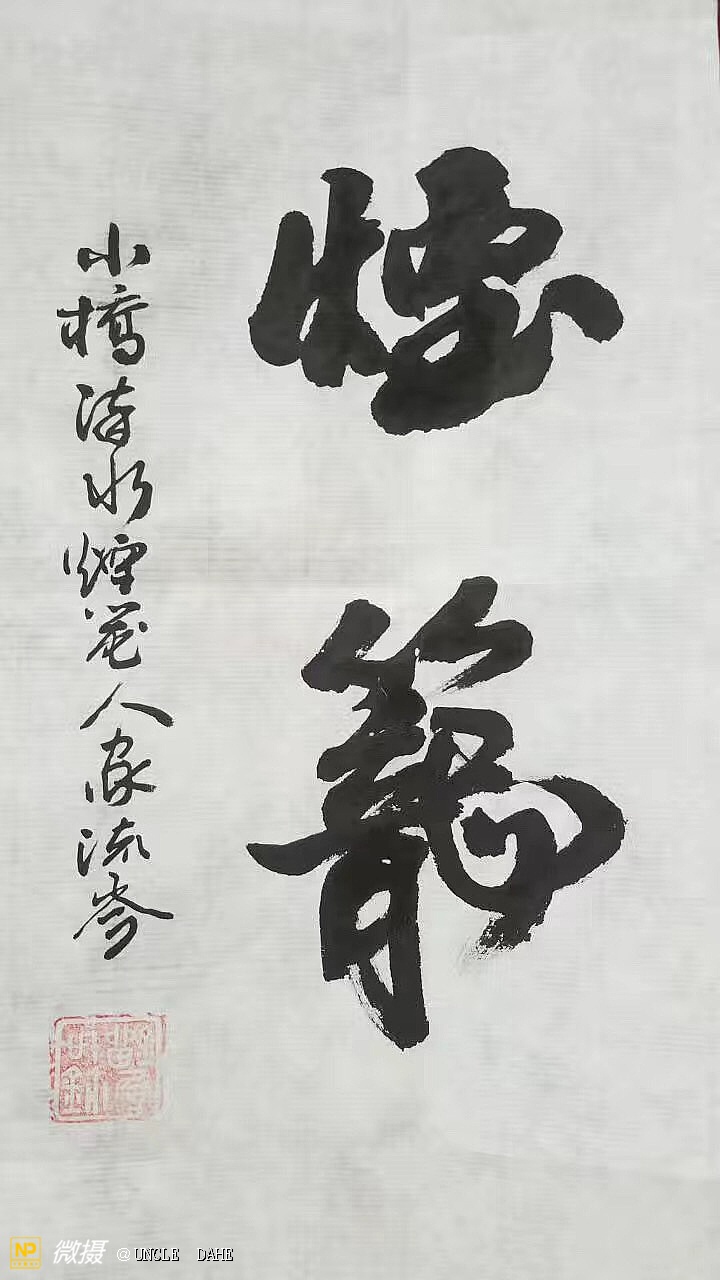 煙籠
小橋水煙籠人家流岑
NP 微摄 @UNCLE DAHE